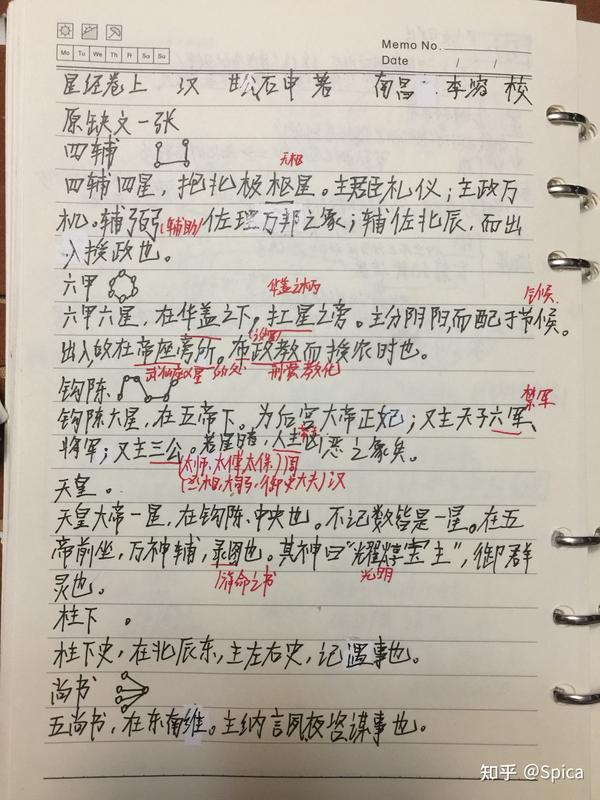 Memo No.
Mo Tu We Th Fr Sa Su
Date / /
星经卷上 汉 石申 著 南昌 李 校
原缺文一张
四辅
无极
四辅四星，抱北极枢星。主君臣礼仪；主政万
机。辅弼(辅助)佐理万邦之象；辅佐北辰，而出
入授政也。
六甲 华盖之柄 气候
六甲六星，在华盖之下，扛星之旁。主分阴阳而配于节候。
出入故在帝座旁所。布政教而授农时也。
刑赏教化
钩陈 禁军
钩陈六星，在五帝下。为后宫大帝正妃；又主天子六军
将军；又主三公。若星暗，人主凶恶之象矣。
(太师、太傅、太保)周
(丞相、大司马、御史大夫)汉
天皇
天皇大帝一星，在钩陈、中央也。不记数皆是一星。在五
帝前坐，万神辅，录图也。其神曰“耀魄宝主”，御群
灵也。 光明
柱下
柱下史，在北辰东，主左右史，记遇事也。
尚书
五尚书，在东南维。主纳言夙夜咨谋事也。
知乎 @Spica